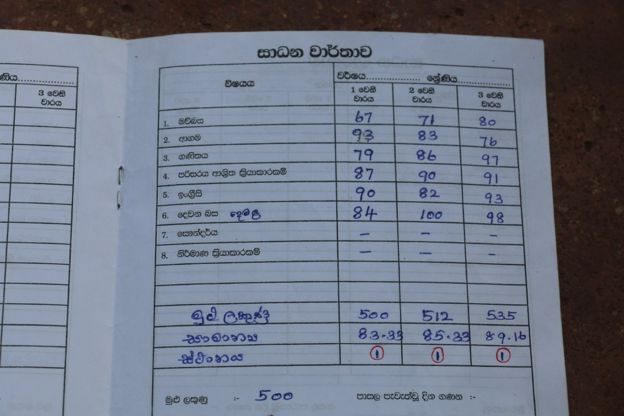 සාධන වාර්තාව
ණිය............
3 වෙනි වාරය
විෂයය වර්ෂය............ ශ්‍රේණිය............
1 වෙනි වාරය 2 වෙනි වාරය 3 වෙනි වාරය
1. මව්බස 67 71 80
2. ආගම 93 83 76
3. ගණිතය 79 86 97
4. පරිසරය ආශ්‍රිත ක්‍රියාකාරකම් 87 90 91
5. ඉංග්‍රීසි 90 82 93
6. දෙවන බස දෙමළ 84 100 98
7. සෞන්දර්ය – – –
8. නිර්මාණ ක්‍රියාකාරකම් – – –
මුළු ලකුණු 500 512 535
සාමාන්‍යය 83.33 85.33 89.16
ස්ථානය 1 1 1
මුළු ලකුණු :- 500 පාසල පැවැත්වූ දින ගණන :-